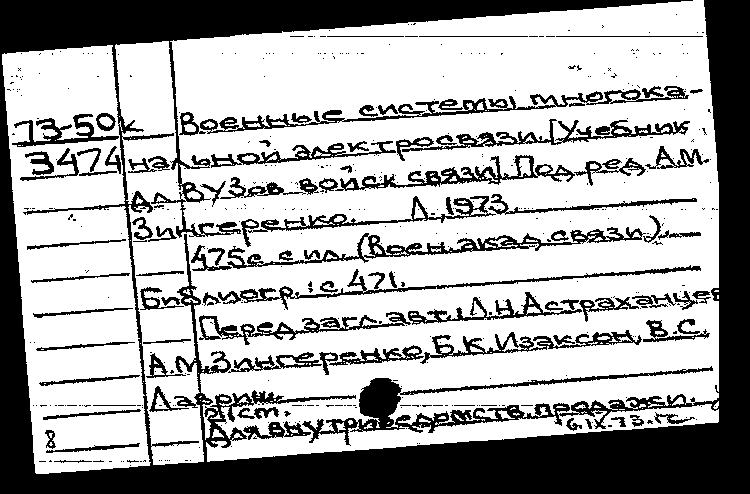 73-50к Военные системы многока-
3474 нальной электросвязи. [Учебник
дл ВУЗов войск связи]. Под ред. А.М.
Зингеренко. Л., 1973.
475с. с ил. (Воен. акад. связи).
Библиогр.: с. 471.
Перед загл. авт.: Л.Н. Астраханцев
А.М. Зингеренко, Б.К. Изаксон, В.С.
Лавриш.
Для внутриведомств. продажи.
8